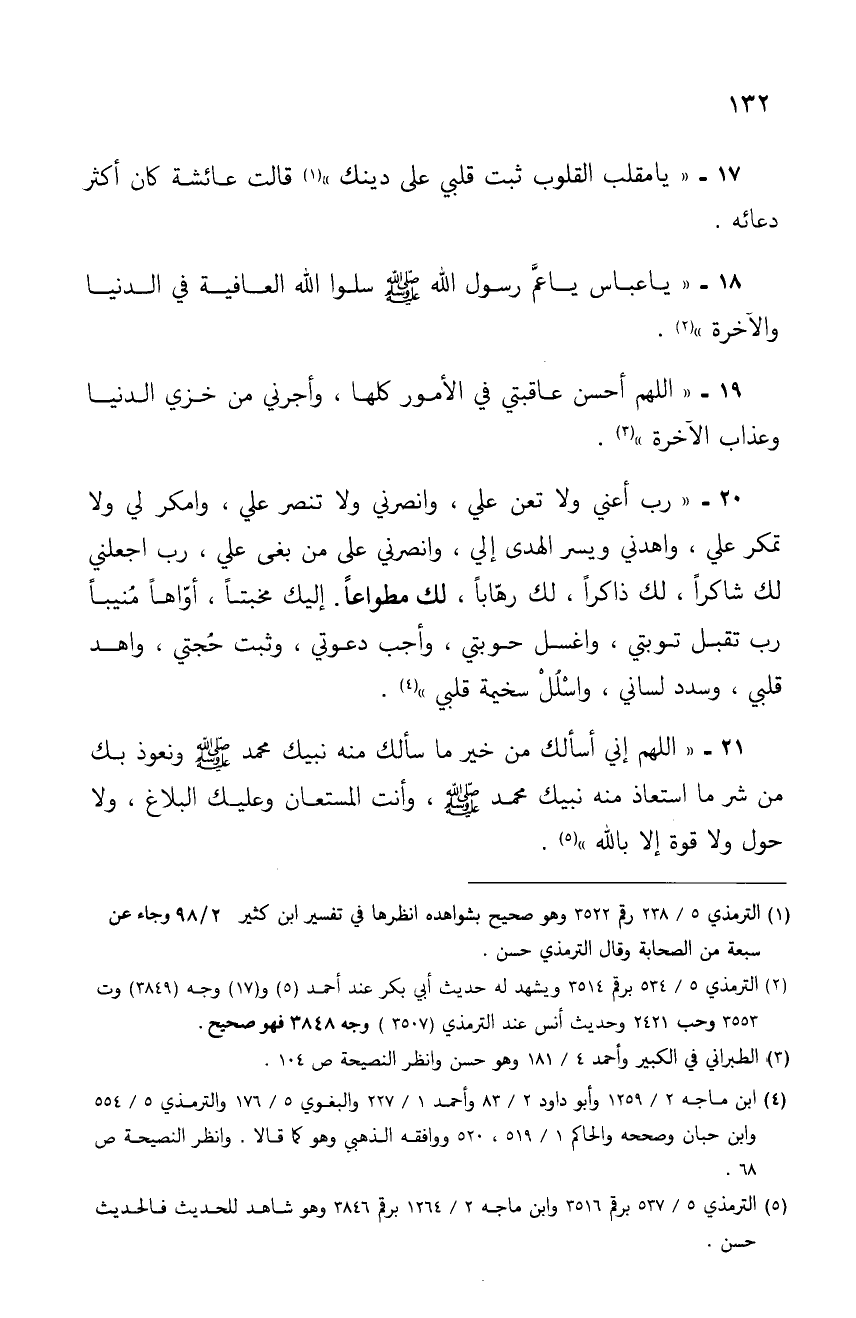 ١٣٢
١٧ ـ « يامقلب القلوب ثبت قلبي على دينك »(١) قالت عائشة كان أكثر
دعائه .
١٨ ـ « ياعباس ياعمَّ رسول الله ﷺ سلوا الله العافية في الدنيا
والآخرة »(٢) .
١٩ ـ « اللهم أحسن عاقبتي في الأمور كلها ، وأجرني من خزي الدنيا
وعذاب الآخرة »(٣) .
٢٠ ـ « رب أعني ولا تعن علي ، وانصرني ولا تنصر علي ، وامكر لي ولا
تمكر علي ، واهدني ويسر الهدى إلي ، وانصرني على من بغى علي ، رب اجعلني
لك شاكراً ، لك ذاكراً ، لك رهّاباً ، لك مطواعاً . إليك مخبتاً ، أوّاهاً مُنيباً
رب تقبل توبتي ، واغسل حوبتي ، وأجب دعوتي ، وثبت حُجتي ، واهد
قلبي ، وسدد لساني ، واسْلُلْ سخيمة قلبي »(٤) .
٢١ ـ « اللهم إني أسألك من خير ما سألك منه نبيك محمد ﷺ ونعوذ بك
من شر ما استعاذ منه نبيك محمد ﷺ ، وأنت المستعان وعليك البلاغ ، ولا
حول ولا قوة إلا بالله »(٥) .
(١) الترمذي ٥ / ٢٣٨ رقم ٣٥٢٢ وهو صحيح بشواهده انظرها في تفسير ابن كثير ٩٨/٢ وجاء عن
سبعة من الصحابة وقال الترمذي حسن .
(٢) الترمذي ٥ / ٥٣٤ برقم ٣٥١٤ ويشهد له حديث أبي بكر عند أحمد (٥) و(١٧) وجه (٣٨٤٩) وت
٣٥٥٣ وحب ٢٤٢١ وحديث أنس عند الترمذي (٣٥٠٧ ) وجه ٣٨٤٨ فهو صحيح .
(٣) الطبراني في الكبير وأحمد ٤ / ١٨١ وهو حسن وانظر النصيحة ص ١٠٤ .
(٤) ابن ماجه ٢ / ١٢٥٩ وأبو داود ٢ / ٨٣ وأحمد ١ / ٢٢٧ والبغوي ٥ / ١٧٦ والترمذي ٥ / ٥٥٤
وابن حبان وصححه والحاكم ١ / ٥١٩ ، ٥٢٠ ووافقه الذهبي وهو كما قالا . وانظر النصيحة ص
٦٨ .
(٥) الترمذي ٥ / ٥٣٧ برقم ٣٥١٦ وابن ماجه ٢ / ١٢٦٤ برقم ٣٨٤٦ وهو شاهد للحديث فالحديث
حسن .